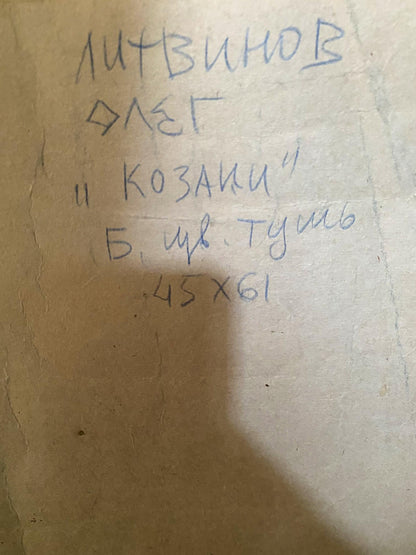 ЛИТВИНОВ
ОЛЕГ
"КОЗАКИ"
Б, цв. тушь
45X61